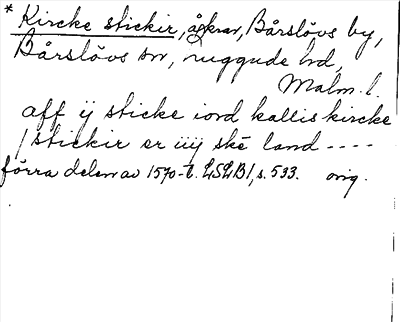 * Kircke stickir, åkrar, Bårslövs by,
Bårslövs sn, ruggude hd,
Malm. l.
aff ij sticke iord kallis kircke
/stickir er iiij ske land ----
förra delen av 1570-t. LSLB1, s. 533. orig.